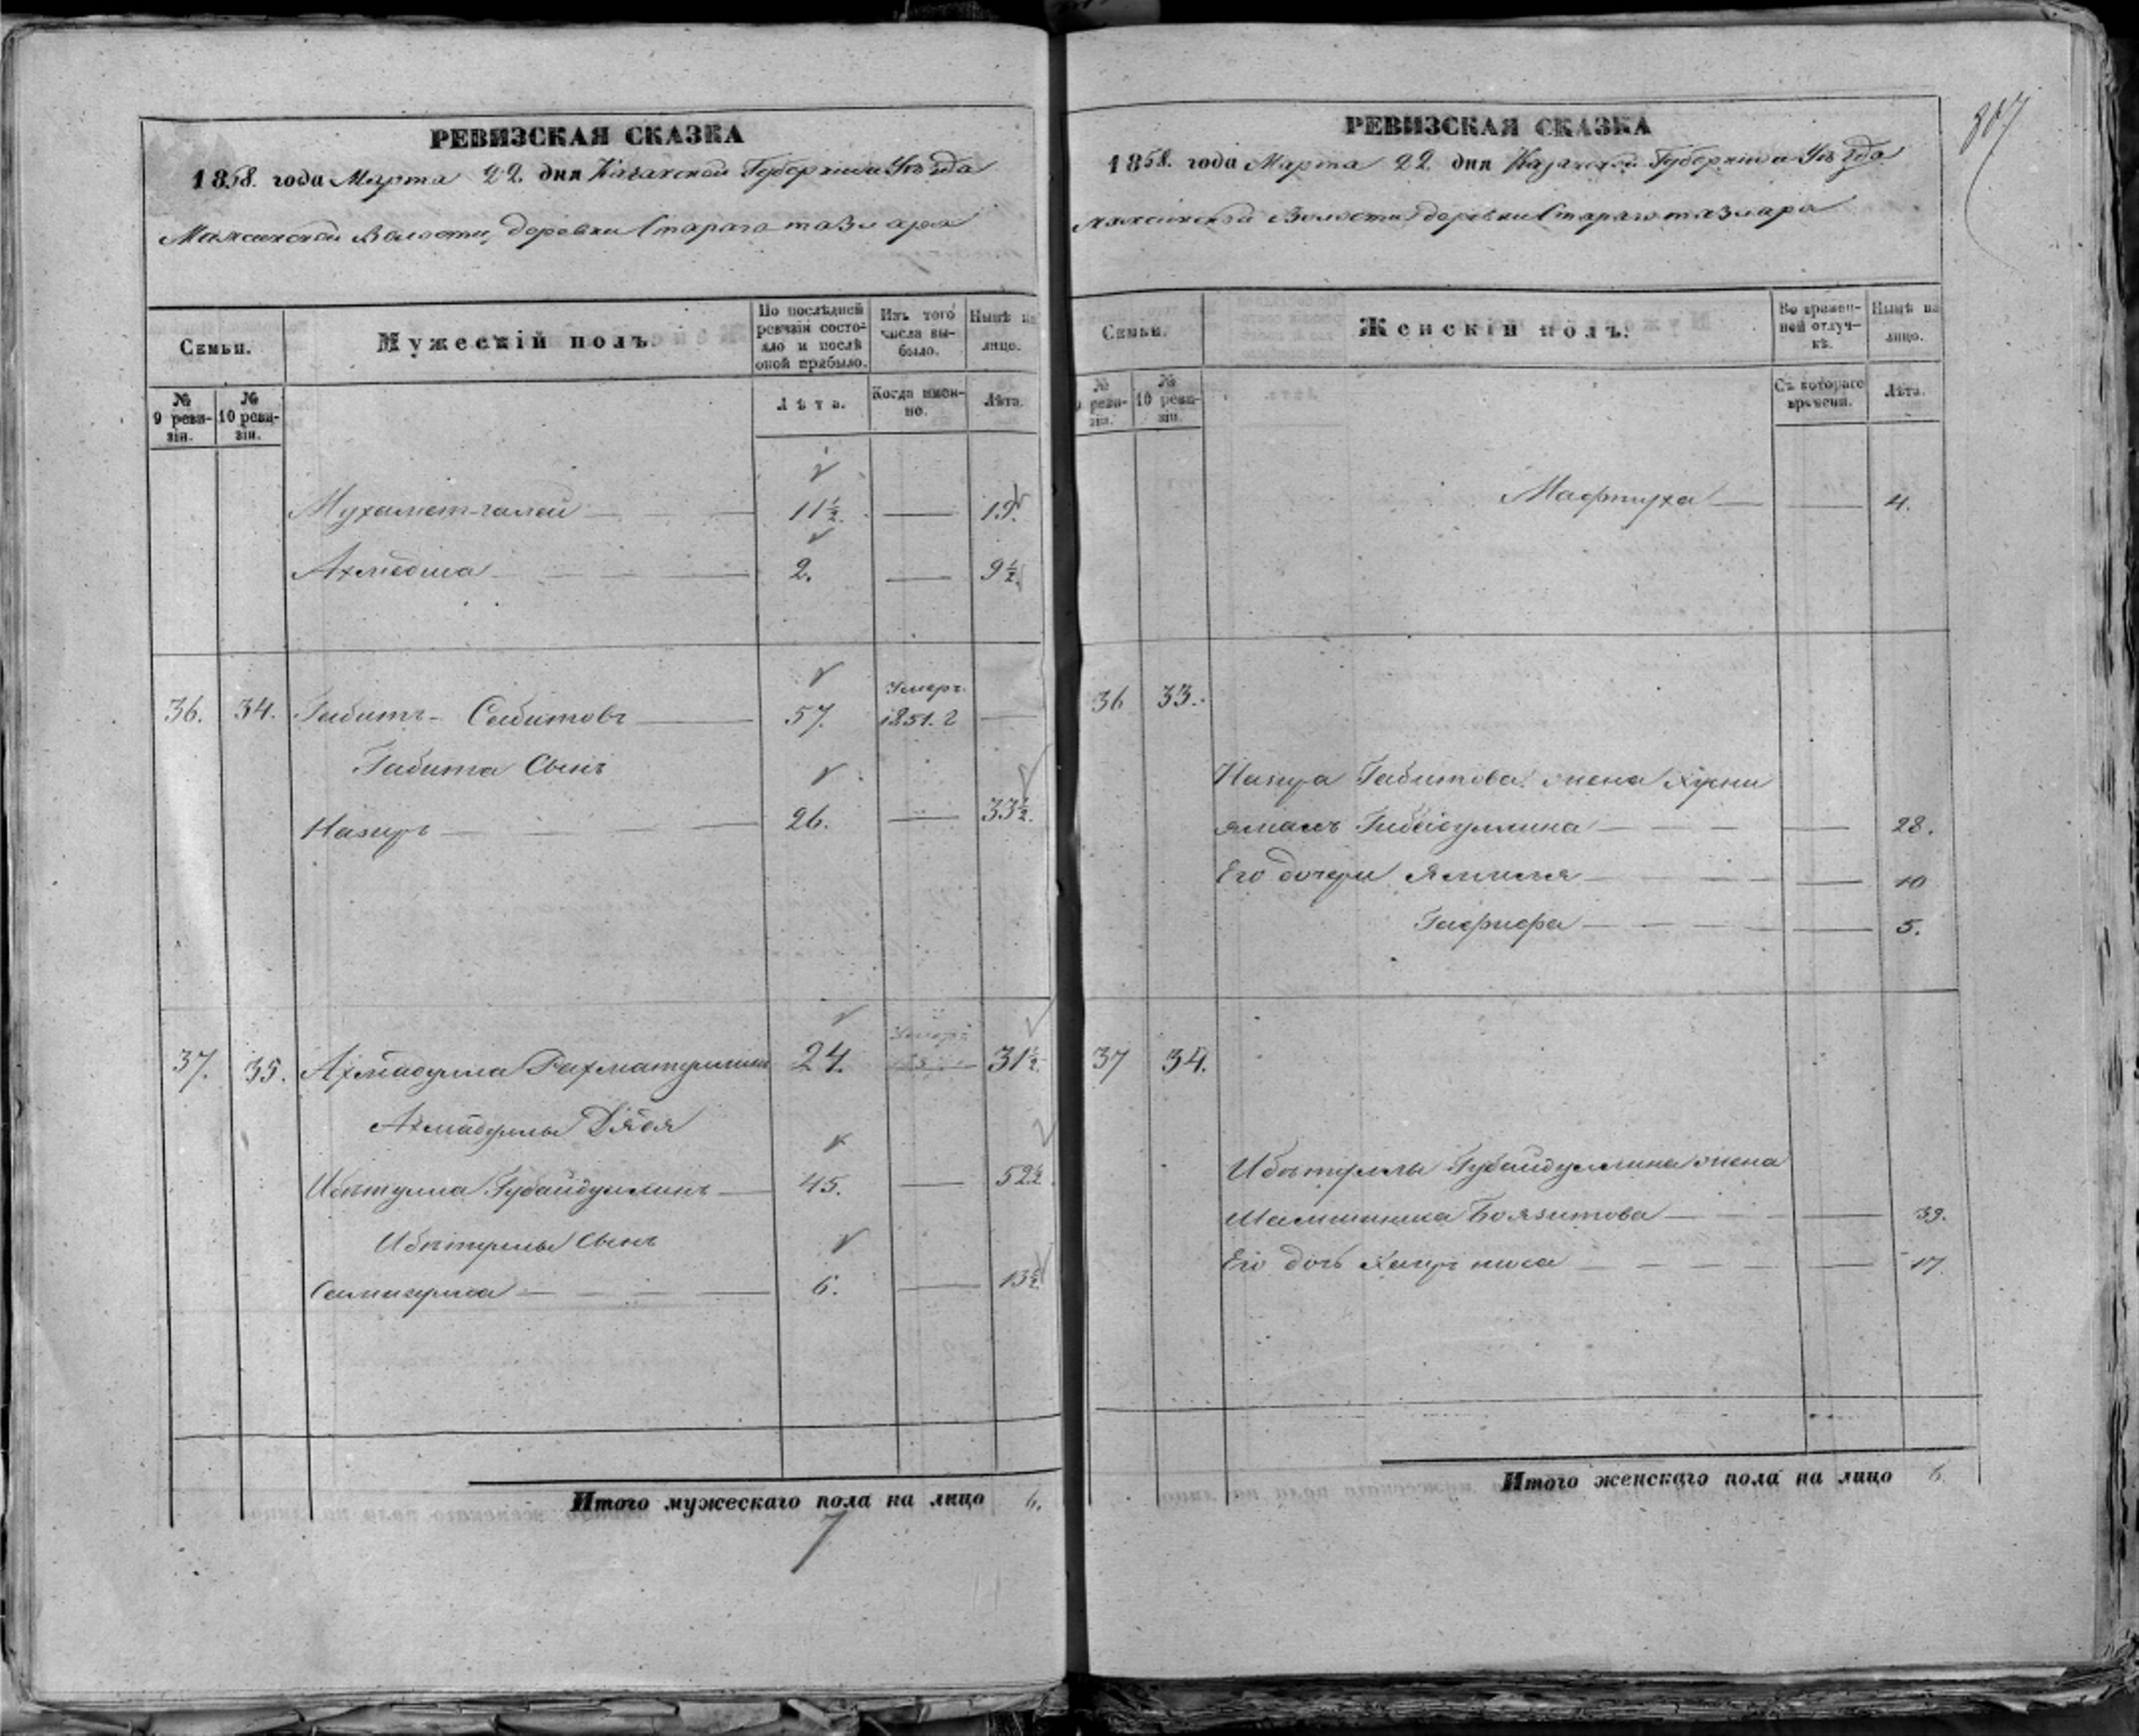 РЕВИЗСКАЯ СКАЗКА
1858. года Марта 22. дня Казанской Губернии и Уѣзда
Волости, деревни Стараго
Семьи.
Мужескій полъ.
По послѣдней ревизіи состояло и послѣ оной прибыло.
Изъ того числа выбыло.
Нынѣ на лицо.
№ 9 ревизіи.
№ 10 ревизіи.
Лѣта.
Когда именно.
Лѣта.
Мухаметгалей — 11½. — 19.
Ахмедша — 2. — 9½.
36. 34. Габитъ Сабитовъ — 57. Умеръ 1851. г —
Габита Сынъ
Назиръ — 26. — 33½.
37. 35. Ахмадулла Рахматуллинъ 24. — 31½.
Ахмадуллы Дядя
Ибятулла Губайдуллинъ — 45. — 52½.
Ибятуллы Сынъ
— 6. — 13½.
Итого мужескаго пола на лицо 6.
7
РЕВИЗСКАЯ СКАЗКА
1858. года Марта 22. дня Казанской Губерніи и Уѣзда
Волости деревни Стараго
Семьи.
Женскій полъ.
Во временной отлучкѣ.
Нынѣ на лицо.
№ 9 ревизіи.
№ 10 ревизіи.
Съ котораго времени.
Лѣта.
Мафтуха — — 4.
36 33.
Назира Габитова жена Хусни
ямалъ Губайдуллина — — 28.
Его дочери — — 10
Гафифа — — 5.
37 34.
Ибятуллы Губайдуллина жена
Боязитова — — 39.
Его дочь — — 17.
Итого женскаго пола на лицо 6.